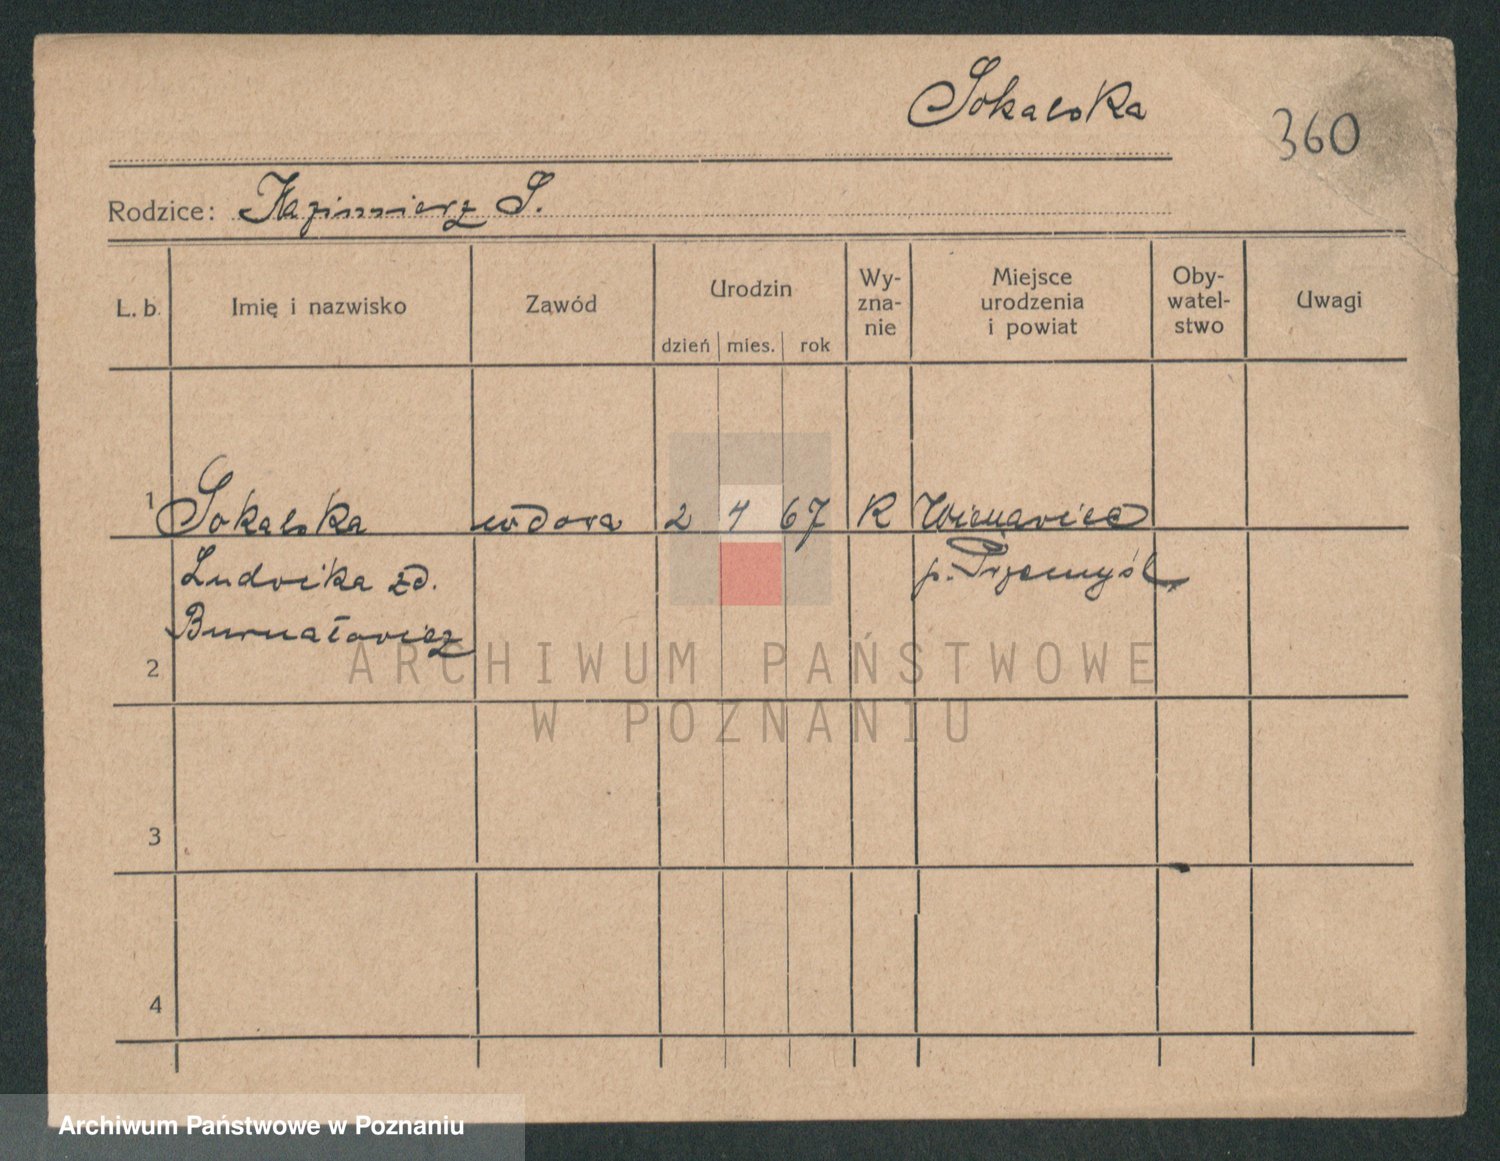 Sokalska
360
Rodzice: Kazimierz S.
L. b. Imię i nazwisko Zawód Urodzin Wy- Miejsce Oby- Uwagi
zna- urodzenia watel-
nie i powiat stwo
dzień mies. rok
1 Sokalska wdowa 2 4 67 R
Ludwika zd. p. Przemyśl
Burnatowicz
2
ARCHIWUM PAŃSTWOWE
W POZNANIU
3
4
Archiwum Państwowe w Poznaniu